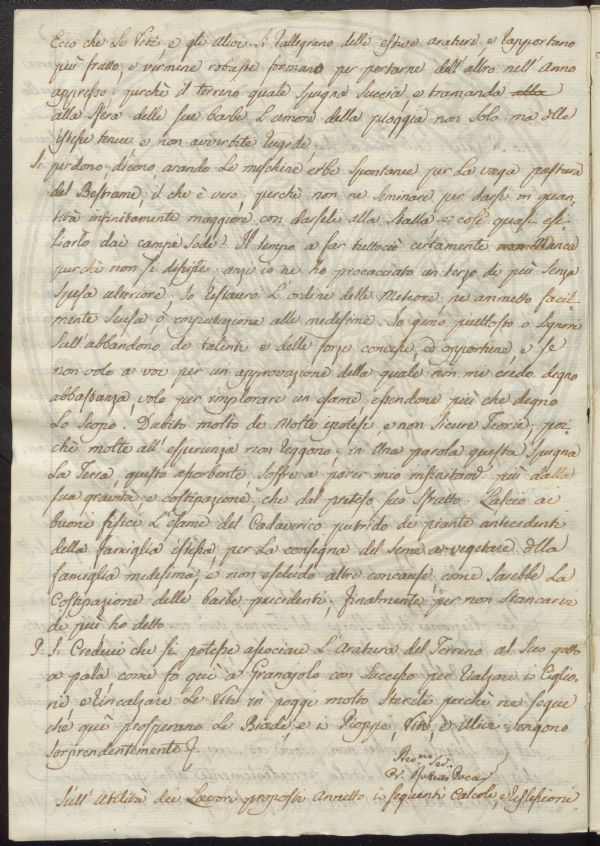 Ecco che Le Viti e gli Ulivi si rallegrano delle estive arature, e rapportano
più frutto, e vermene robuste formano per portarne dell'altro nell'Anno
appresso: perchè il terreno quale spugna succia, e tramanda alla
alla sfera delle sue barbe L'umore della pioggia non solo ma delle
istesse tenui e non avvertite rugiade.
Si perdono, dicono, arando Le meschine erbe spontanee per La vaga pastura
del Bestiame; il che è vero; perchè non ne seminare per darsi in quan-
tità infinitamente maggiore, con darsele alla Stalla e così quasi esi-
liarlo dai campi sodi? Il tempo a far tuttociò certamente non manca
purchè non si dissipi: anzi io ne ho procacciato un terzo di più senza
spesa ulteriore. Io restauro L'ordine delle Meteore, ne ammetto facil-
mente scusa, o imputazione alle medesime. Io gemo piuttosto o Signori
sull'abbandono de talenti e delle forze concesse, ed opportune, e se
non volo a voi per un approvazione della quale non mi credo degno
abbastanza, volo per implorare un esame, essendone più che degno
Lo scopo. Dubito molto di Molte ipotesi e non sicure Teorie, poi-
chè molte all'esperienza non reggono; in una parola questa spugna
La Terra, questo assorbente, soffre a parer mio infinitam.e più dalla
sua gravità e costipazione, che dal preteso suo sfratto. Lascio ai
buoni fisici L'esame del Cadaverico putrido di piante antecedenti
della famiglia istessa per La consegna del seme a vegetare della
famiglia medesima, e non escludo altre concause come sarebbe La
Costipazione delle barbe precedenti; finalmente per non stancarvi
di più ho detto
P. Si Crederei che si potesse associare L'Aratura del Terreno al suo getto
a pala come fo quì a Granajolo con successo per rialzare i Ciglio-
ni e rincalzare Le Viti in poggi molto sterili perchè ne segue
che quì prosperano Le Biade, e i Pioppi, Viti, e Ulivi vengono
sorprendentemente
Sull'Utilità dei Lavori proposti Annetto i seguenti Calcoli, e riflessioni